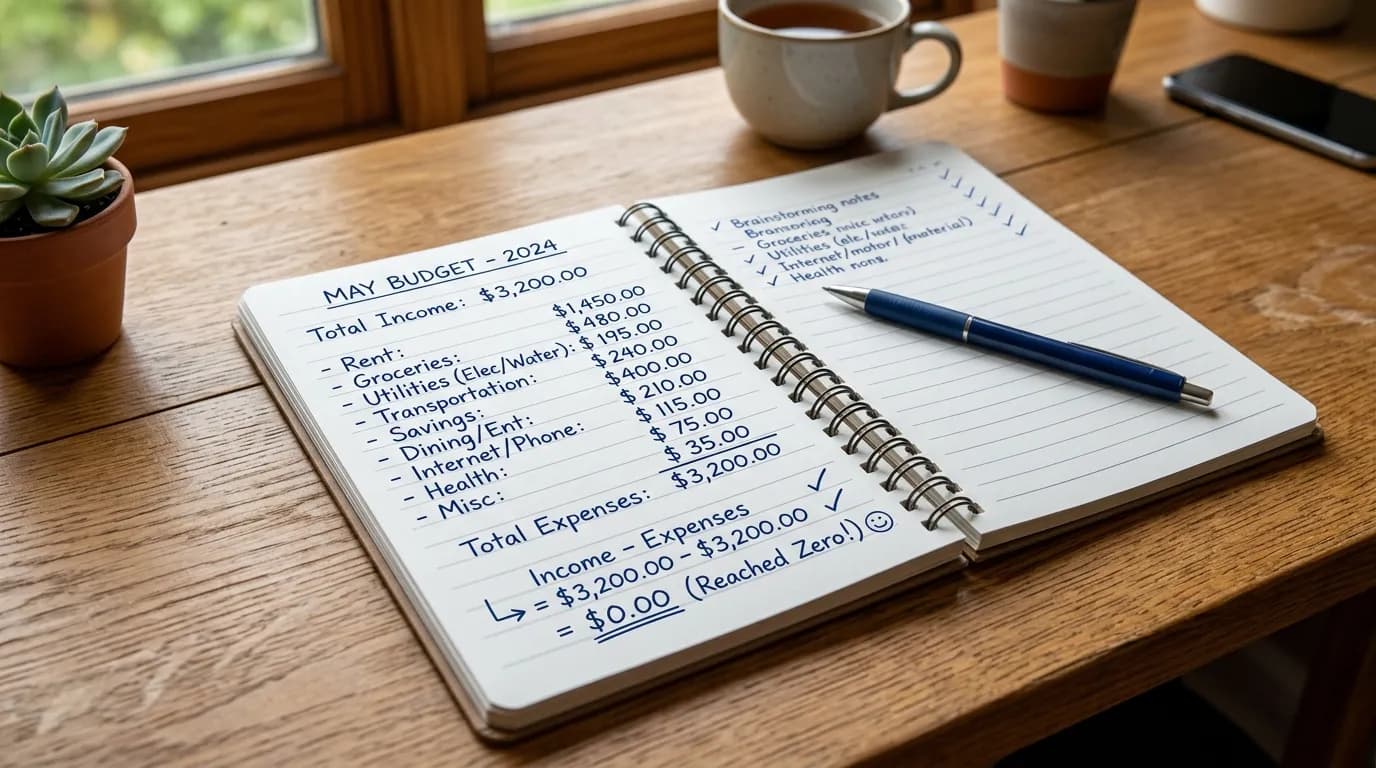 MAY BUDGET - 2024
Total Income: $3,200.00
- Rent: $1,450.00
- Groceries: $480.00
- Utilities (Elec/Water): $195.00
- Transportation: $240.00
- Savings: $400.00
- Dining/Ent: $210.00
- Internet/Phone: $115.00
- Health: $75.00
- Misc: $35.00
Total Expenses: $3,200.00
Income - Expenses ✓
↳ = $3,200.00 - $3,200.00 ✓
= $0.00 (Reached Zero!) ☺
✓ Brainstorming notes
- Groceries
✓ Utilities
✓ Internet/motor/ (material)
✓ Health